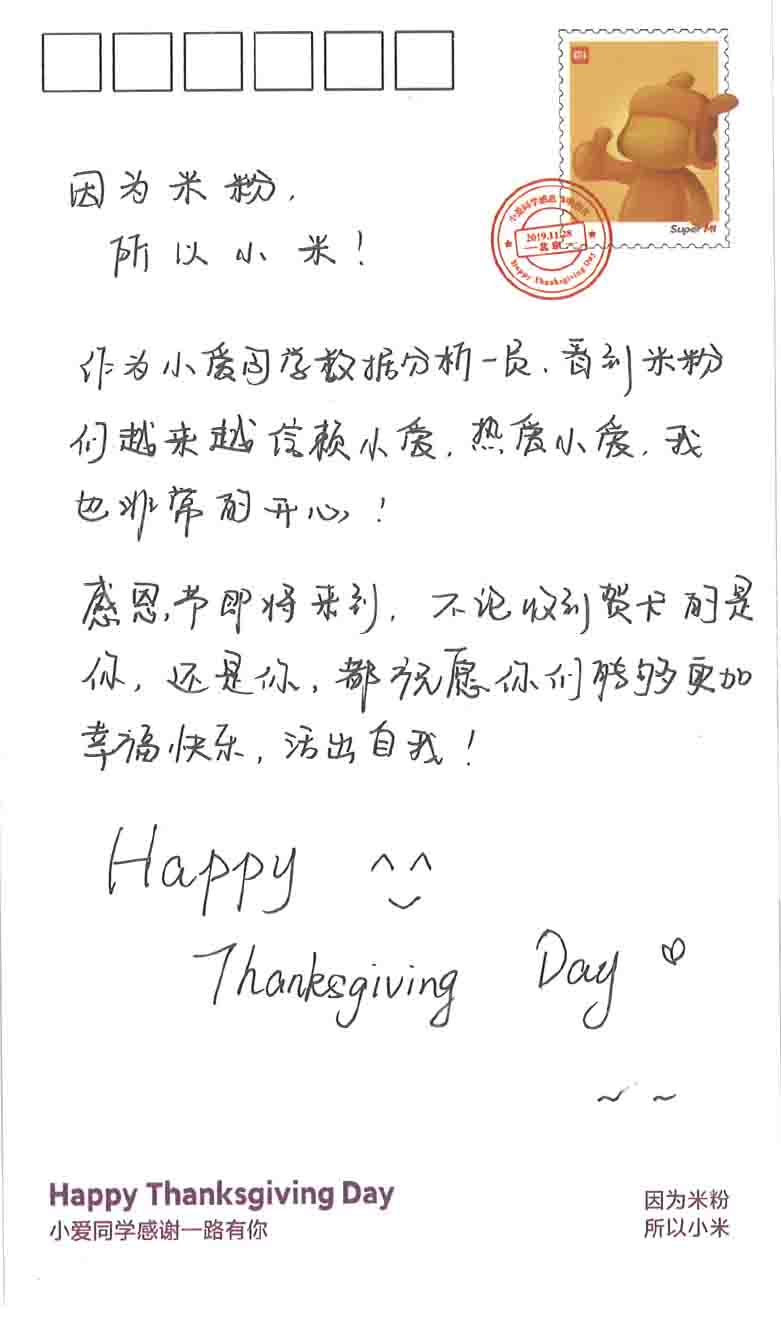 因为米粉，
所以小米！
Super MI
小爱同学感恩
2019.11.28
北京
Happy Thanksgiving Day
作为小爱同学数据分析一员，看到米粉
们越来越信赖小爱，热爱小爱，我
也非常的开心！
感恩节即将来到，不论收到贺卡的是
你，还是你，都祝愿你们能够更加
幸福快乐，活出自我！
Happy ^^
Thanksgiving Day
~ ~
Happy Thanksgiving Day
小爱同学感谢一路有你
因为米粉
所以小米